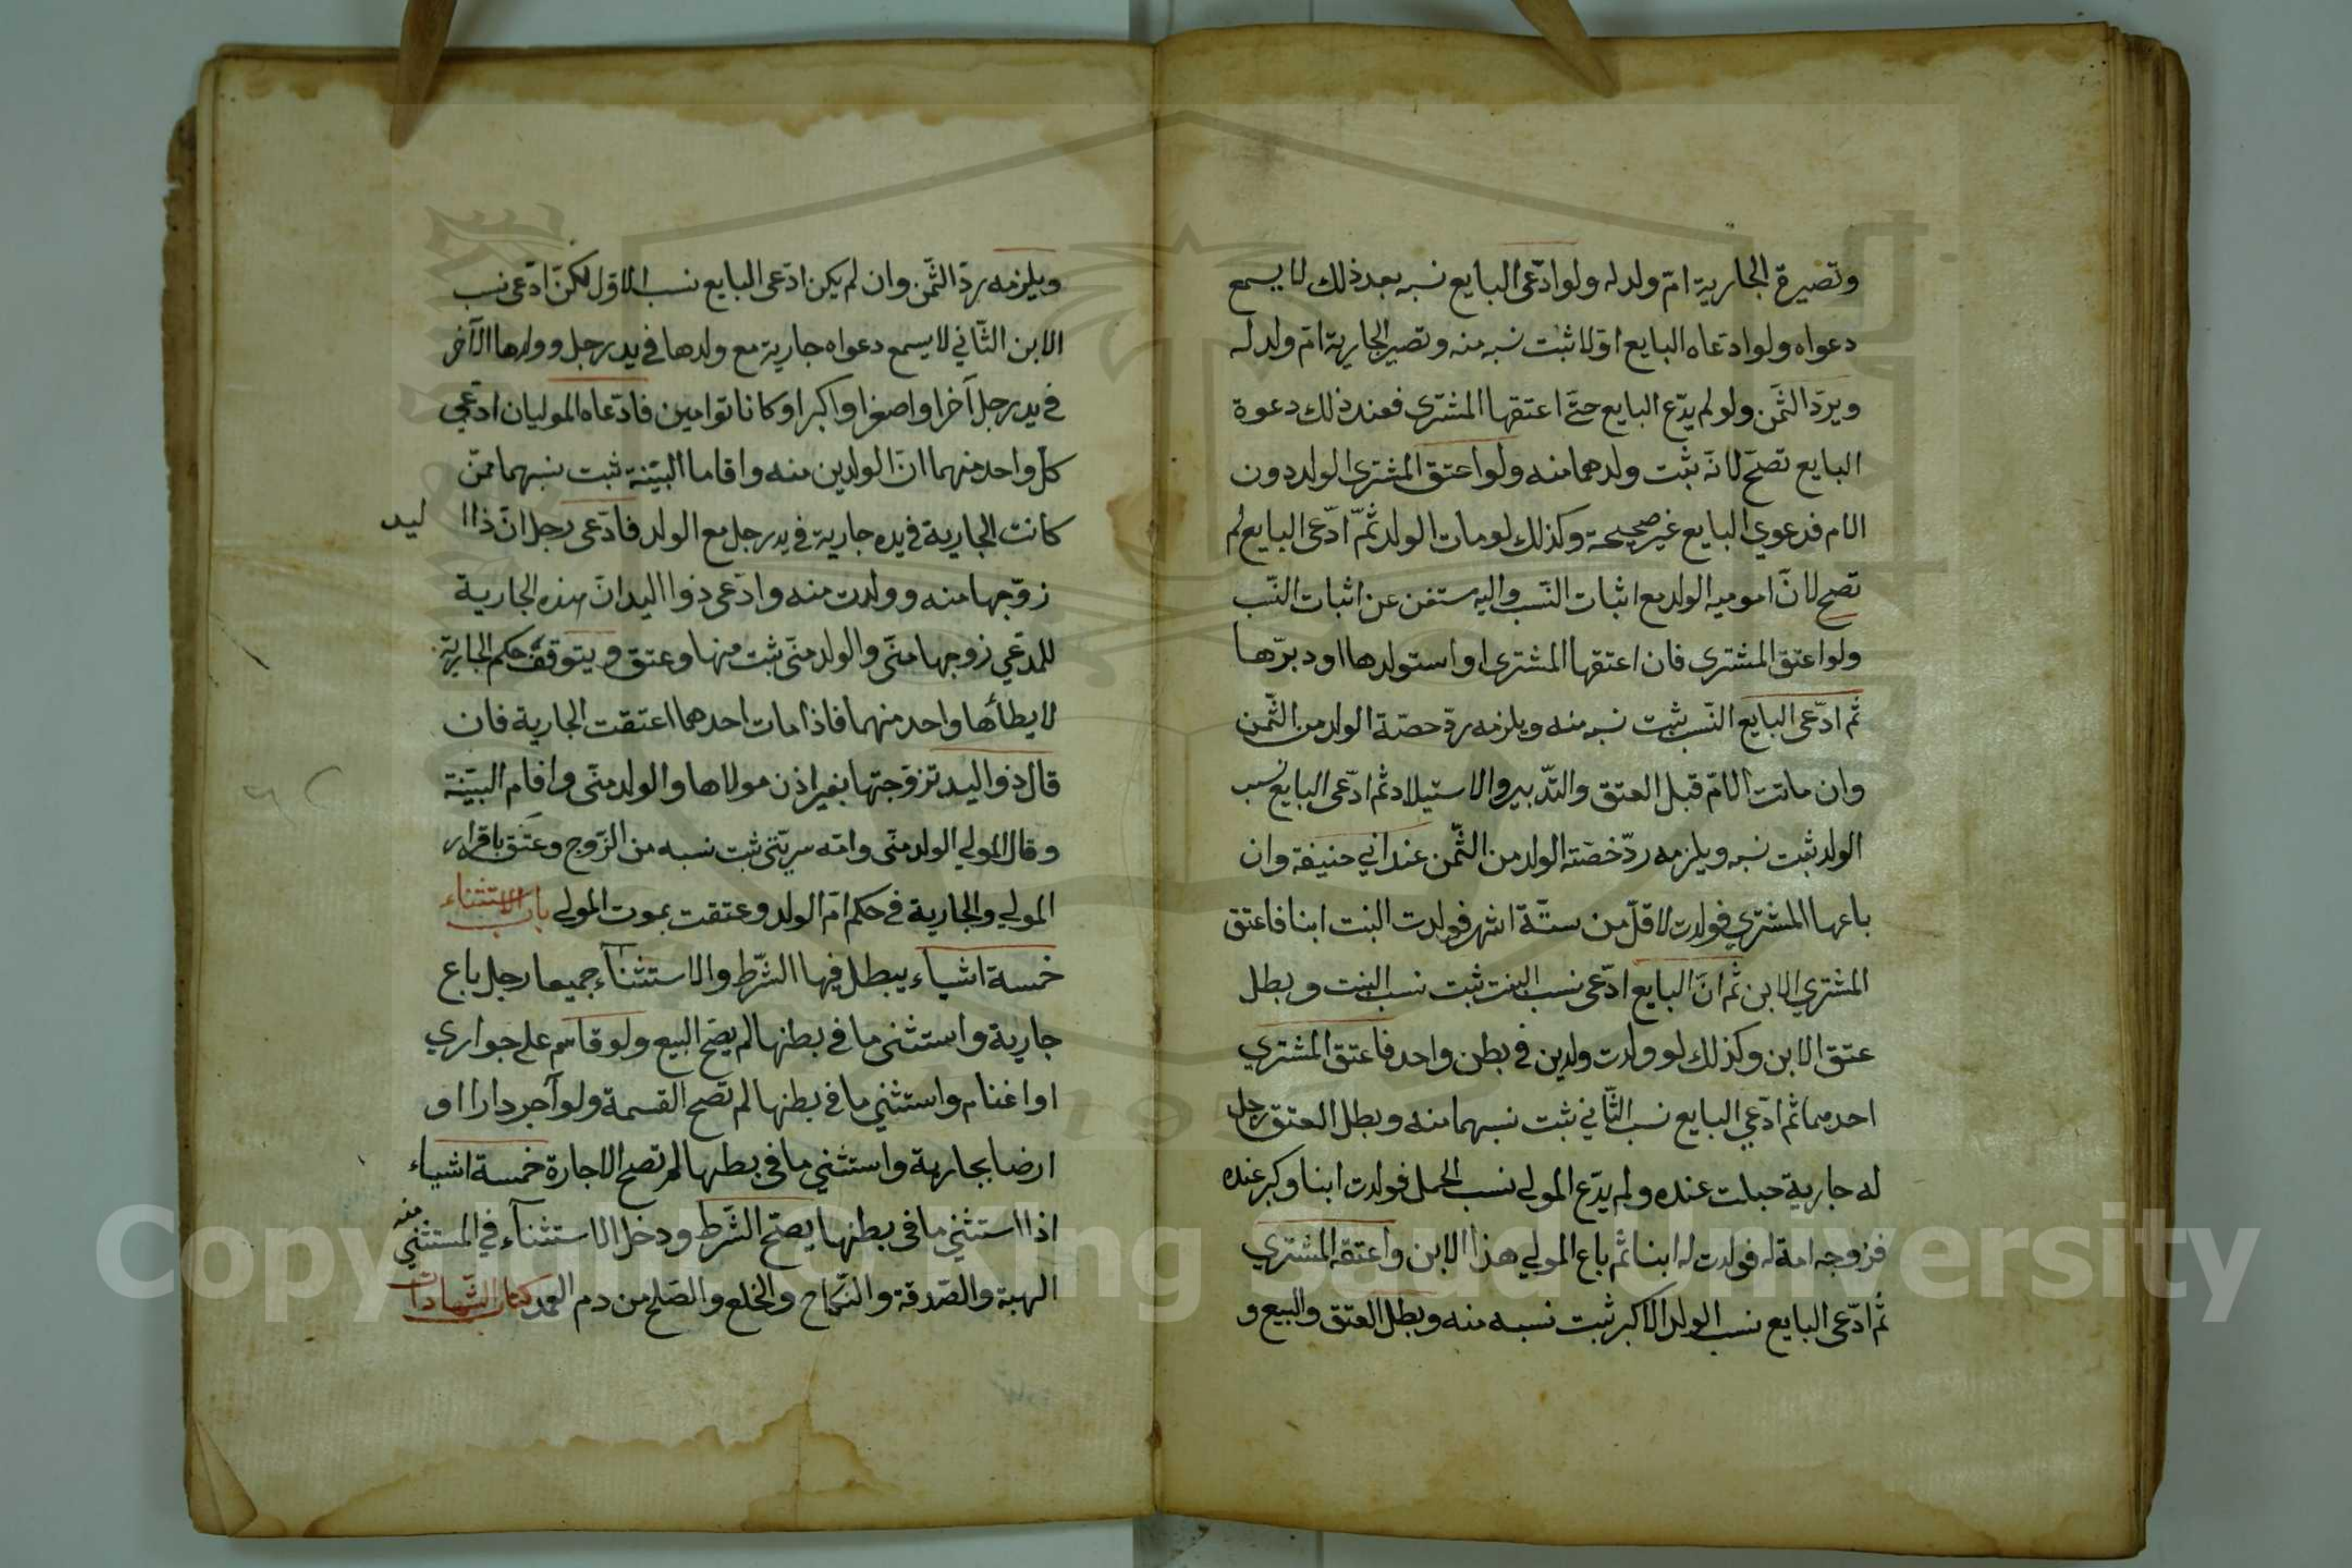 وتصيرة الجارية امّ ولد له ولو ادّعى البايع نسبه بعد ذلك لا يسمع
دعواه ولو ادعاه البايع اوّلا ثبت نسبه منه وتصير الجارية امّ ولد له
ويردّ الثمن ولو لم يدّع البايع حتّى اعتقها المشترى فعند ذلك دعوة
البايع تصحّ لانّه ثبت ولدهما منه ولو اعتق المشترى الولد دون
الام فدعوي البايع غير صحيحة وكذلك لو مات الولد ثمّ ادّعى البايع لم
تصح لانّ الولد مع اثبات النسب واليه ستغن عن اثبات النّسب
ولو اعتق المشترى فان اعتقها المشترى او استولدها او دبرّها
ثم ادّعى البايع النّسب ثبت نسبه منه ويلزمه ردّ حصّة الولد من الثّمن
وان ماتت الامّ قبل العتق والتّدبير والاستيلاد ثم ادّعى البايع نسب
الولد ثبت نسبه ويلزمه ردّ حصّته الولد من الثّمن عند ابي حنيفة وان
باعها المشتري فولدت لاقلّ من ستّة اشهر فولدت البنت ابنا فاعتق
المشتري الابن ثم انّ البايع ادّعى نسب البنت ثبت نسب البنت وبطل
عتق الابن وكذلك لو ولدت ولدين في بطن واحد فاعتق المشتري
احدهما ثم ادّعي البايع نسب الثّاني ثبت نسبهما منه وبطل العتق رجل
له جارية حبلت عنده ولم يدّع المولى نسب الحمل فولدت ابنا وكبر عنده
فزوجه امة له فولدت له ابنا ثم باع المولي هذا الابن واعتقه المشتري
ثم ادّعى البايع نسب الولد الاكبر ثبت نسبه منه وبطل العتق والبيع و
ويلزمه ردّ الثّمن وان لم يكن ادّعى البايع نسب الاوّل لكنّ ادّعى نسب
الابن الثّاني لا يسمع دعواه جارية مع ولدها في يد رجل وولدها الآخر
في يد رجل آخر او اصغر او اكبر او كانا توامين فادّعاه الموليان ادّعي
كلّ واحد منهما انّ الولدين منه واقاما البيّنة ثبت نسبهما ممّن
كانت الجارية في يده جارية في يد رجل مع الولد فادّعى رجل انّ ذا ا ليد
زوّجها منه وولدت منه وادّعى ذوا اليد انّ هذه الجارية
للمدّعي زوجها منّي والولد منّي ثبت منها وعتق ويتوقف حكم الجارية
لا يطأها واحد منهما فاذا مات احدهما اعتقت الجارية فان
قال ذو اليد تزوّجتها بغير اذن مولاها والولد منّي واقام البيّنة
وقال المولي الولد منّي وامّه سريّتي ثبت نسبه من الزّوج وعتق باقرار
المولي والجارية في حكم امّ الولد وعتقت بموت المولي باب الاستثناء
خمسة اشياء يبطل فيها الشّرط والاستثنآء جميعا رجل باع
جارية واستثنى ما في بطنها لم يصحّ البيع ولو قاسم على جواري
او اغنام واستثني ما في بطنها لم تصح القسمة ولو آجر دارا او
ارضا بجارية واستثني ما في بطنها لم تصح الاجارة خمسة اشياء
اذا استثني ما في بطنها يصحّ الشّرط ودخل الاستثنآء في المستثني منه
الهبة والصّدقة والنّكاح والخلع والصّلح من دم العمد كتاب الشّهادات
Copyright © King Saud University